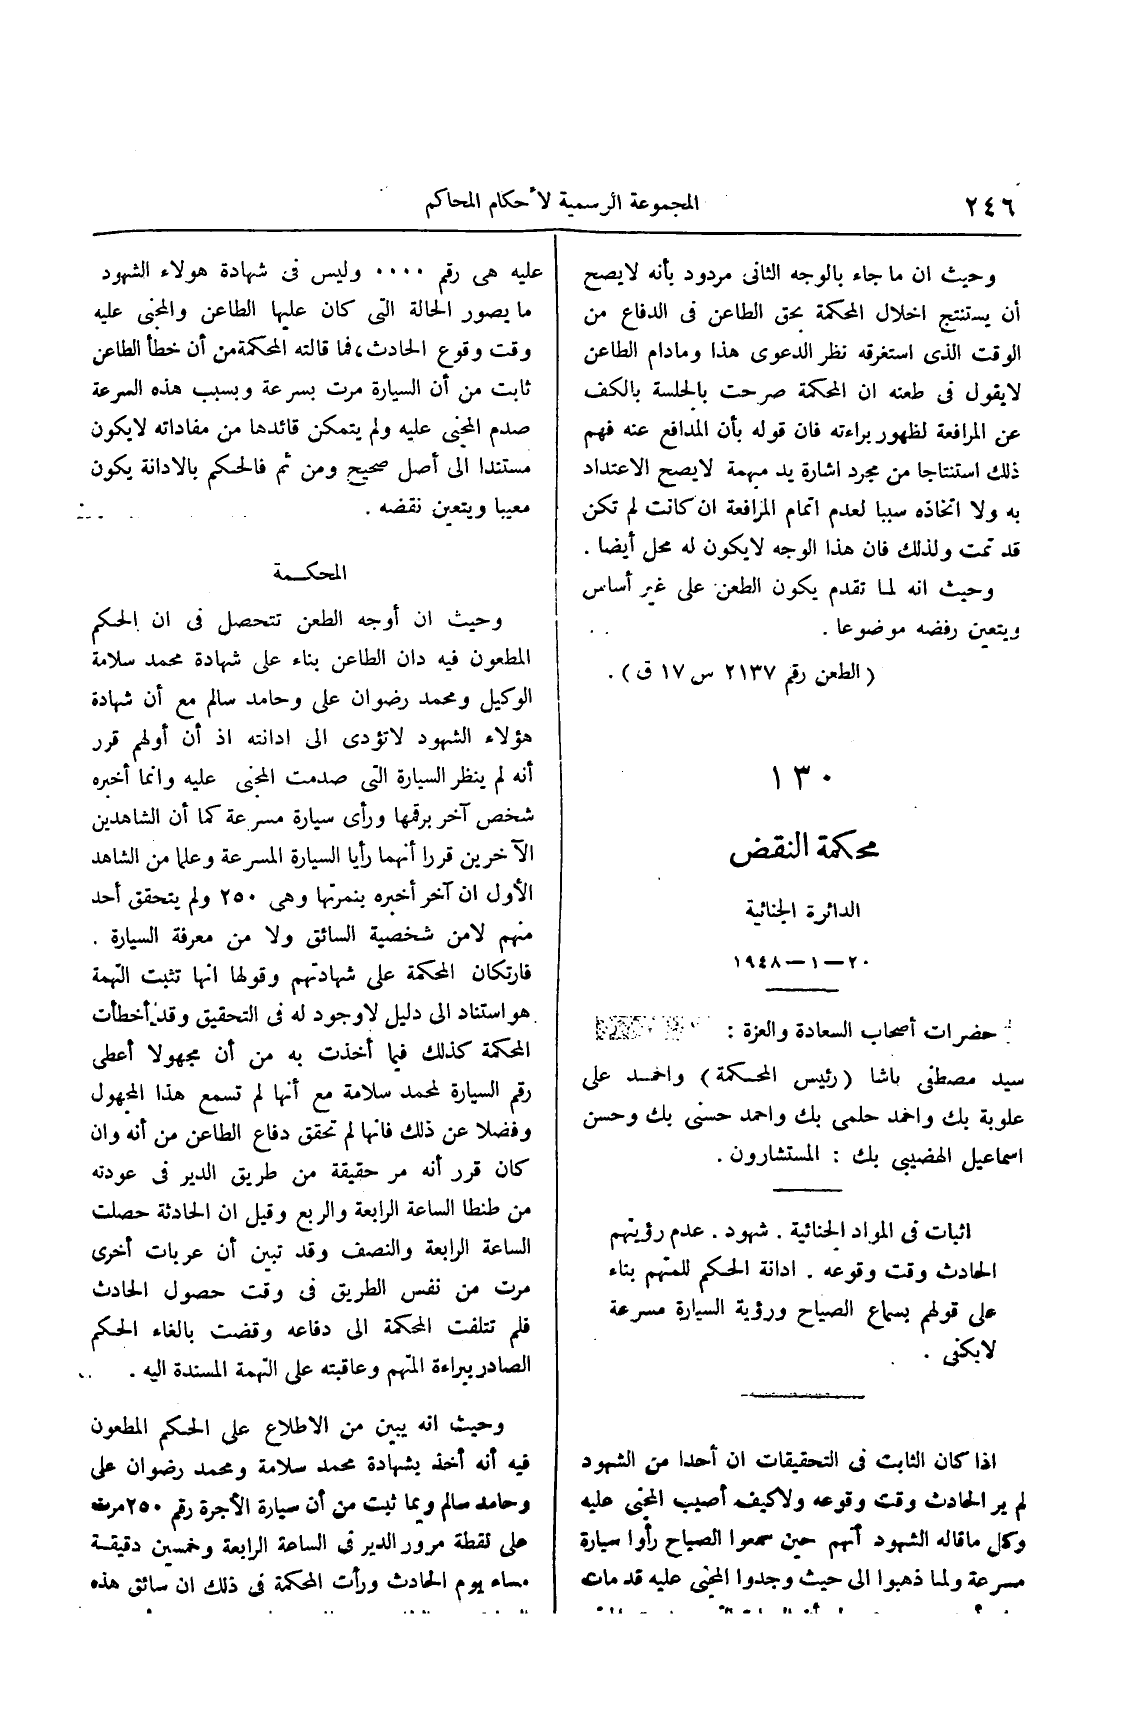 ٢٤٦
المجموعة الرسمية لأحكام المحاكم
وحيث ان ما جاء بالوجه الثانى مردود بأنه لايصح
أن يستنتج اخلال المحكمة بحق الطاعن فى الدفاع من
الوقت الذى استغرقه نظر الدعوى هذا ومادام الطاعن
لايقول فى طعنه ان المحكمة صرحت بالجلسة بالكف
عن المرافعة لظهور براءته فان قوله بأن المدافع عنه فهم
ذلك استنتاجا من مجرد اشارة يد مبهمة لايصح الاعتداد
به ولا اتخاذه سببا لعدم اتمام المرافعة ان كانت لم تكن
قد تمت ولذلك فان هذا الوجه لايكون له محل أيضا .
وحيث انه لما تقدم يكون الطعن على غير أساس
ويتعين رفضه موضوعا .
( الطعن رقم ٢١٣٧ س ١٧ ق ) .
١٣٠
محكمة النقض
الدائرة الجنائية
٢٠ – ١ – ١٩٤٨
حضرات أصحاب السعادة والعزة :
سيد مصطفى باشا ( رئيس المحكمة ) واحمد على
علوبة بك واحمد حلمى بك واحمد حسنى بك وحسن
اسماعيل الهضيبى بك : المستشارون .
اثبات فى المواد الجنائية . شهود . عدم رؤيتهم
الحادث وقت وقوعه . ادانة الحكم للمتهم بناء
على قولهم بسماع الصياح ورؤية السيارة مسرعة
لايكفى .
اذا كان الثابت فى التحقيقات ان أحدا من الشهود
لم ير الحادث وقت وقوعه ولاكيف أصيب المجنى عليه
وكل ماقاله الشهود أنهم حين سمعوا الصياح رأوا سيارة
مسرعة ولما ذهبوا الى حيث وجدوا المجنى عليه قد مات
عليه هى رقم ٠٠٠٠ وليس فى شهادة هولاء الشهود
ما يصور الحالة التى كان عليها الطاعن والمجنى عليه
وقت وقوع الحادث، فما قالته المحكمة من أن خطأ الطاعن
ثابت من أن السيارة مرت بسرعة وبسبب هذه السرعة
صدم المجنى عليه ولم يتمكن قائدها من مفاداته لايكون
مستندا الى أصل صحيح ومن ثم فالحكم بالادانة يكون
معيبا ويتعين نقضه .
المحكمة
وحيث ان أوجه الطعن تتحصل فى ان الحكم
المطعون فيه دان الطاعن بناء على شهادة محمد سلامة
الوكيل ومحمد رضوان على وحامد سالم مع أن شهادة
هؤلاء الشهود لاتؤدى الى ادانته اذ أن أولهم قرر
أنه لم ينظر السيارة التى صدمت المجنى عليه وانما أخبره
شخص آخر برقمها ورأى سيارة مسرعة كما أن الشاهدين
الآخرين قررا أنهما رأيا السيارة المسرعة وعلما من الشاهد
الأول ان آخر أخبره بنمرتها وهى ٢٥٠ ولم يتحقق أحد
منهم لامن شخصية السائق ولا من معرفة السيارة .
فارتكان المحكمة على شهادتهم وقولها انها تثبت التهمة
هو استناد الى دليل لاوجود له فى التحقيق وقد أخطأت
المحكمة كذلك فيما أخذت به من أن مجهولا أعطى
رقم السيارة لمحمد سلامة مع أنها لم تسمع هذا المجهول
وفضلا عن ذلك فانها لم تحقق دفاع الطاعن من أنه وان
كان قرر أنه مر حقيقة من طريق الدير فى عودته
من طنطا الساعة الرابعة والربع وقيل ان الحادثة حصلت
الساعة الرابعة والنصف وقد تبين أن عربات أخرى
مرت من نفس الطريق فى وقت حصول الحادث
فلم تتلفت المحكمة الى دفاعه وقضت بالغاء الحكم
الصادر ببراءة المتهم وعاقبته على التهمة المسندة اليه .
وحيث انه يبين من الاطلاع على الحكم المطعون
فيه أنه أخذ بشهادة محمد سلامة ومحمد رضوان على
وحامد سالم وبما ثبت من أن سيارة الأجرة رقم ٢٥٠ مرت
على نقطة مرور الدير فى الساعة الرابعة وخمسين دقيقة
مساء يوم الحادث ورأت المحكمة فى ذلك ان سائق هذه